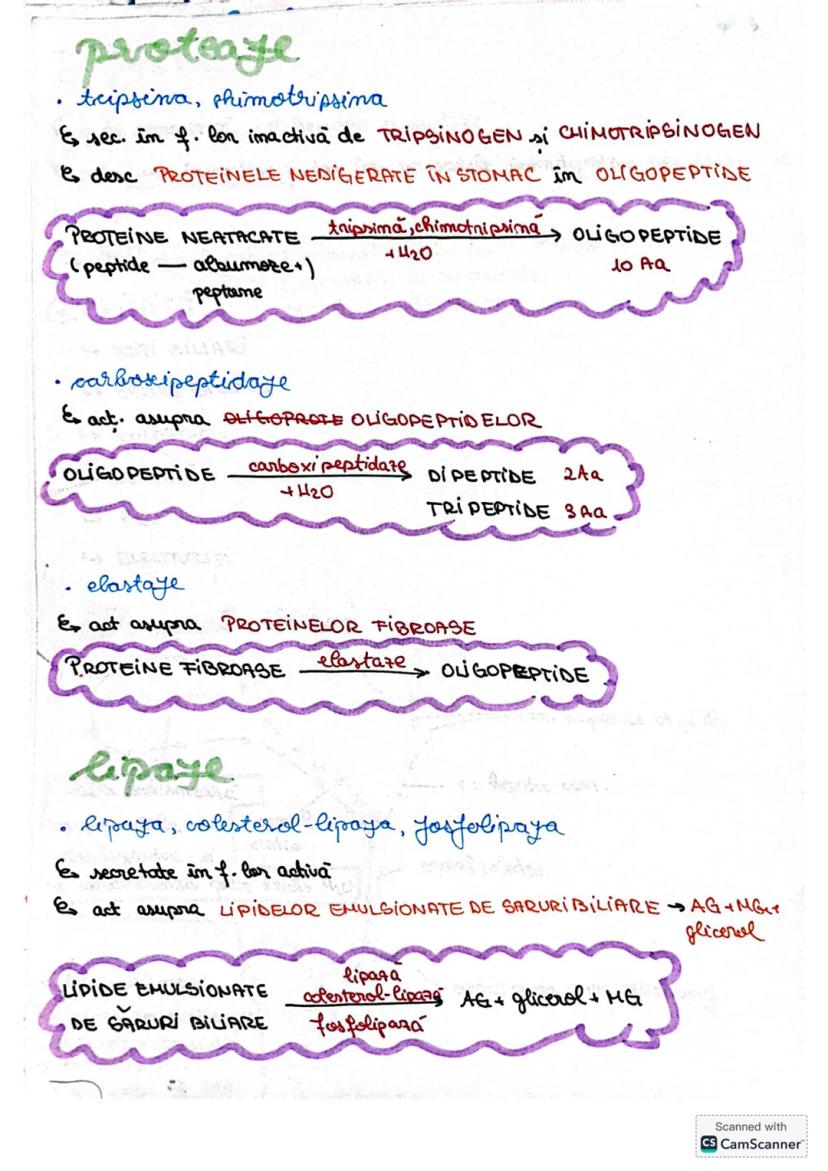 proteaze
• tripsina, chimotripsina
↳ sec. în f. lor inactivă de TRIPSINOGEN și CHIMOTRIPSINOGEN
↳ desc PROTEINELE NEDIGERATE ÎN STOMAC în OLIGOPEPTIDE
PROTEINE NEATACATE tripsină, chimotripsină → OLIGOPEPTIDE
(peptide — albumoze+) +H2O 10 Aa
peptone
• carboxipeptidaze
↳ acț. asupra OLIGOPROTE OLIGOPEPTIDELOR
OLIGOPEPTIDE carboxipeptidaze → DIPEPTIDE 2Aa
+H2O TRIPEPTIDE 3Aa
• elastaze
↳ act asupra PROTEINELOR FIBROASE
PROTEINE FIBROASE elastaze → OLIGOPEPTIDE
lipaze
• lipaza, colesterol-lipaza, fosfolipaza
↳ secretate în f. lor activă
↳ act asupra LIPIDELOR EMULSIONATE DE SARURI BILIARE → AG+MG+
glicerol
lipază
LIPIDE EMULSIONATE colesterol-lipază → AG + glicerol + MG
DE SĂRURI BILIARE fosfolipază
Scanned with
CS CamScanner